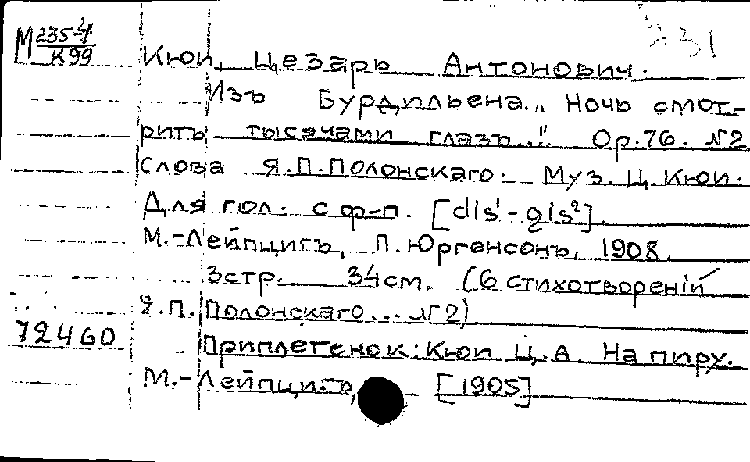 М 235-4/К99
331
Кюи, Цезарь Антонович.
Изъ Бурдильена „Ночь смот-
ритъ тысячами глазъ..." Ор.76. №2
Слова Я.П.Полонскаго. Муз. Ц. Кюи.
Для гол. с ф-п. [dis¹-gis²].
М.-Лейпцигъ, П. Юргенсонъ, 1908.
3стр. 34см. (6 стихотвореній
Я.П. Полонскаго... №2)
72460
Приплетенок: Кюи Ц.А. На пиру.
М.-Лейпцигъ, [1905]